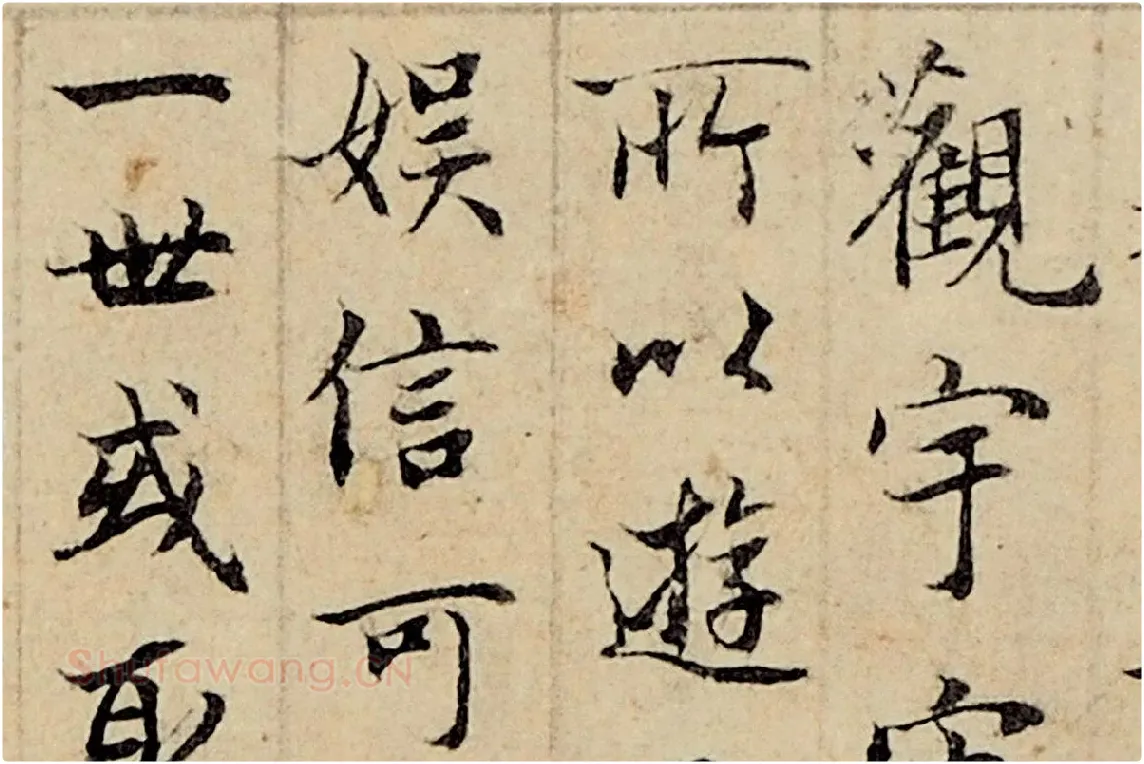 觀宇宙
所以遊
娱信可
一世或取
Shufawang.CN